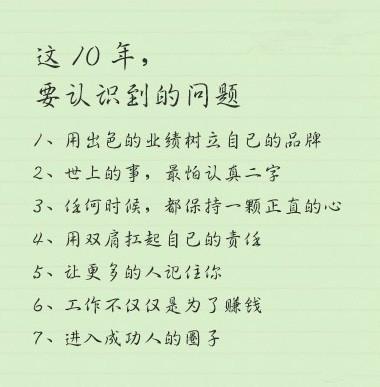 这10年，
要认识到的问题
1、用出色的业绩树立自己的品牌
2、世上的事，最怕认真二字
3、任何时候，都保持一颗正直的心
4、用双肩扛起自己的责任
5、让更多的人记住你
6、工作不仅仅是为了赚钱
7、进入成功人的圈子